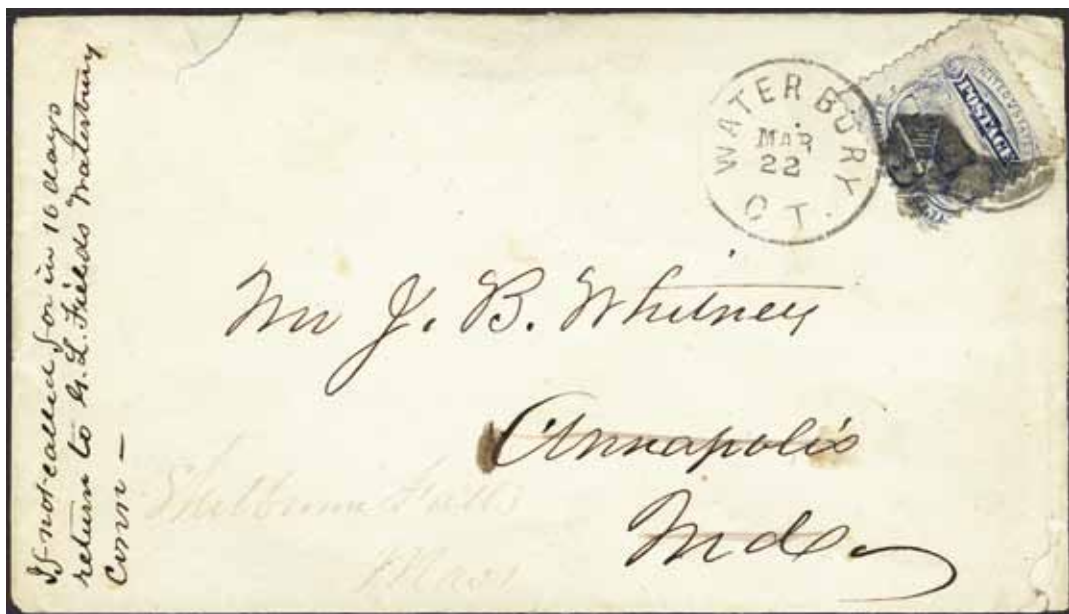 If not called for in 10 days
return to G. L. Fields Waterbury
Conn —
WATERBURY
MAR
22
CT.
UNITED STATES
POSTAGE
Mr J. B. Whitney
Annapolis
Md.
Shelburne Falls
Mass